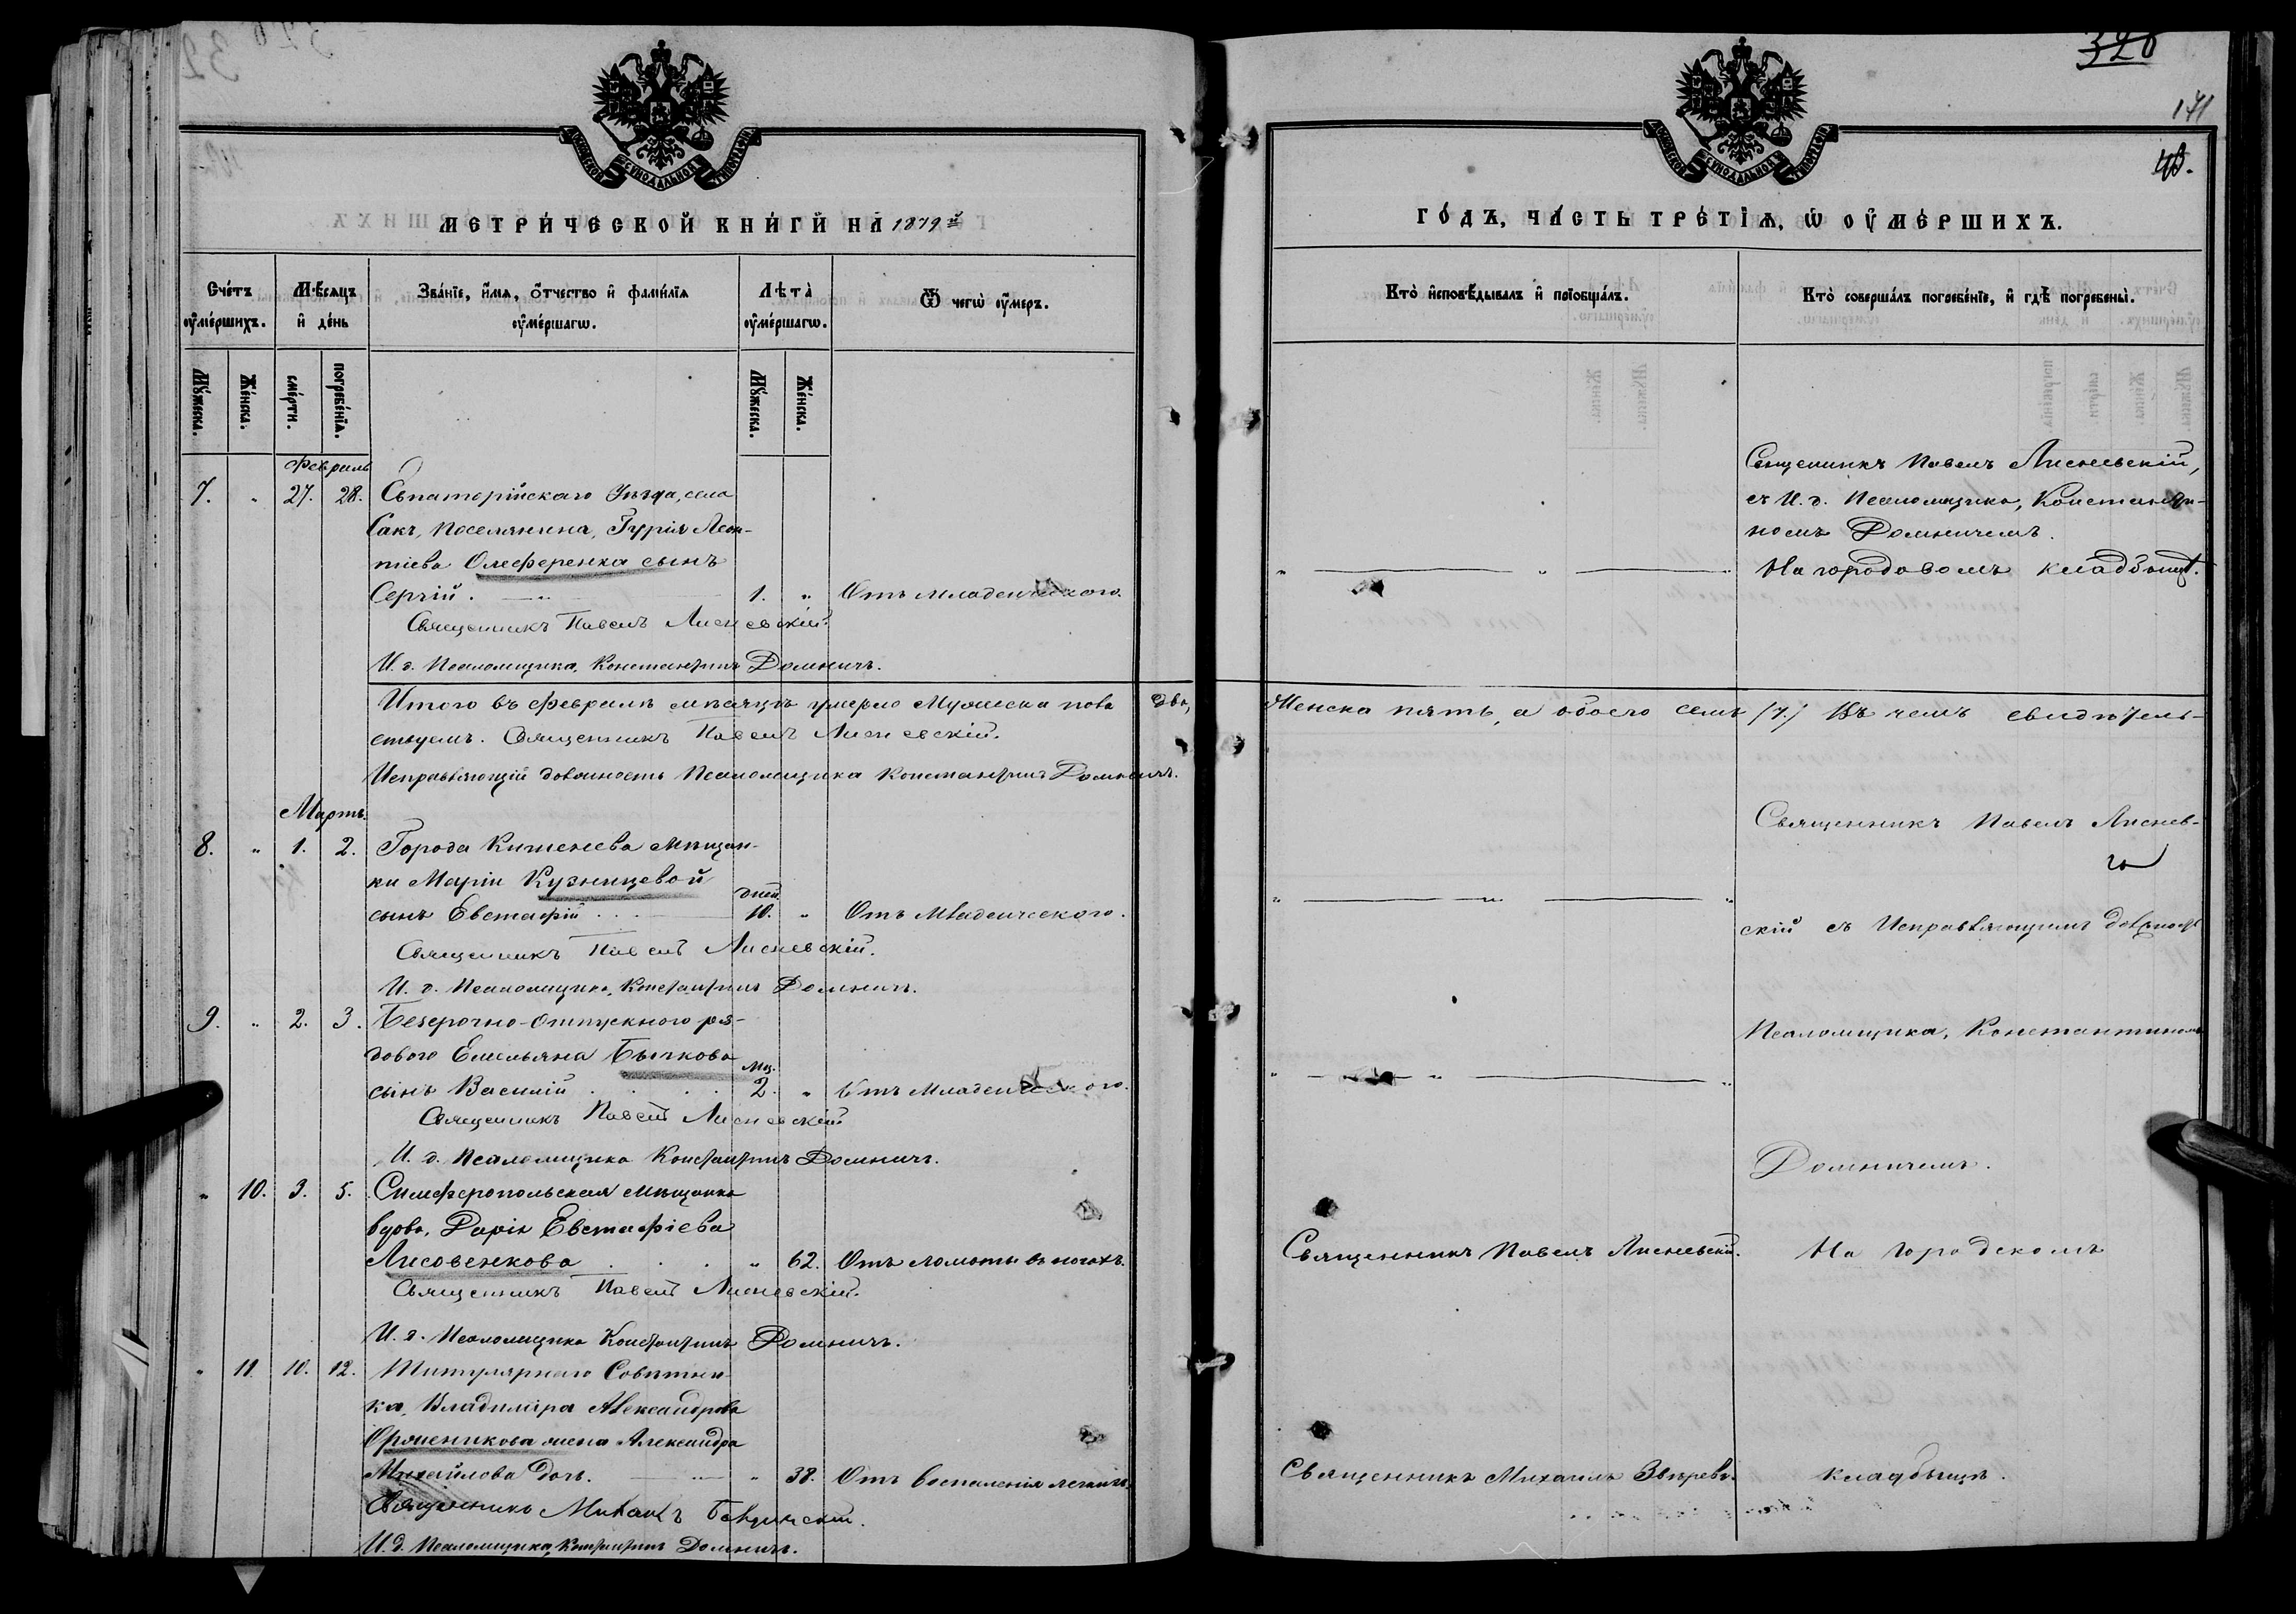 326
141
МЕТРИЧЕСКОЙ КНИГИ НА 1879й
ГОДЪ, ЧАСТЬ ТРЕТІЯ, Ѡ ОУМЕРШИХЪ.
Счетъ оумершихъ.
Мѣсяцъ и день
Званіе, имя, отчество и фамилія оумершагѡ.
Лѣта оумершагѡ.
Ѿ чегѡ оумеръ.
Кто исповѣдывалъ и пріобщалъ.
Кто совершалъ погребеніе, и гдѣ погребены.
Мужеска.
Женска.
смерти.
погребенія.
Мужеска.
Женска.
Февраль
7. " 27. 28. Евпаторійскаго Уѣзда, села
Сакъ, поселянина, Гурія Леон-
тіева Олеференка сынъ
Сергій. 1. " Отъ младенческого.
Священникъ Павелъ Лисневскій.
И. д. Псаломщика, Константинъ Домничъ.
Священникъ Павелъ Лисневскій,
съ И. д. Псаломщика, Константи-
номъ Домничемъ.
На городовомъ кладбищѣ.
Итого въ Февралѣ мѣсяцѣ умерло Мужеска пола два, Женска пять, а обоего семь (7.) Въ чемъ свидѣтель-
ствуемъ. Священникъ Павелъ Лисневскій.
Исправляющій должность Псаломщика Константинъ Домничъ.
Мартъ.
8. " 1. 2. Города Кишенева мѣщан-
ки Маріи Кузницевой
дней
сынъ Евстафій 10. " Отъ младенческого.
Священникъ Павелъ Лисневскій.
И. д. Псаломщика, Константинъ Домничъ.
9. " 2. 3. Безсрочно-отпускного ря-
дового Емельяна Бычкова
мц.
сынъ Василій 2. " Отъ младенческого.
Священникъ Павелъ Лисневскій
И. д. Псаломщика Константинъ Домничъ.
" 10. 3. 5. Симферопольская мѣщанка
вдова, Дарія Евстафіева
Лисовенкова " 62. Отъ ломоты въ ногахъ.
Священникъ Павелъ Лисневскій.
И. д. Псаломщика Константинъ Домничъ.
" 11. 10. 12. Титулярнаго Совѣтни-
ка, Владиміра Александрова
жена Александра
Михайлова дочь. " 38. Отъ воспаленія легкихъ.
Священникъ Михаилъ
И. д. Псаломщика, Константинъ Домничъ.
Священникъ Павелъ Лиснев-
скій съ Исправляющимъ должность
Псаломщика, Константиномъ
Домничемъ.
Священникъ Павелъ Лисневскій. На городскомъ
Священникъ Михаилъ Звѣревъ. кладбищѣ.